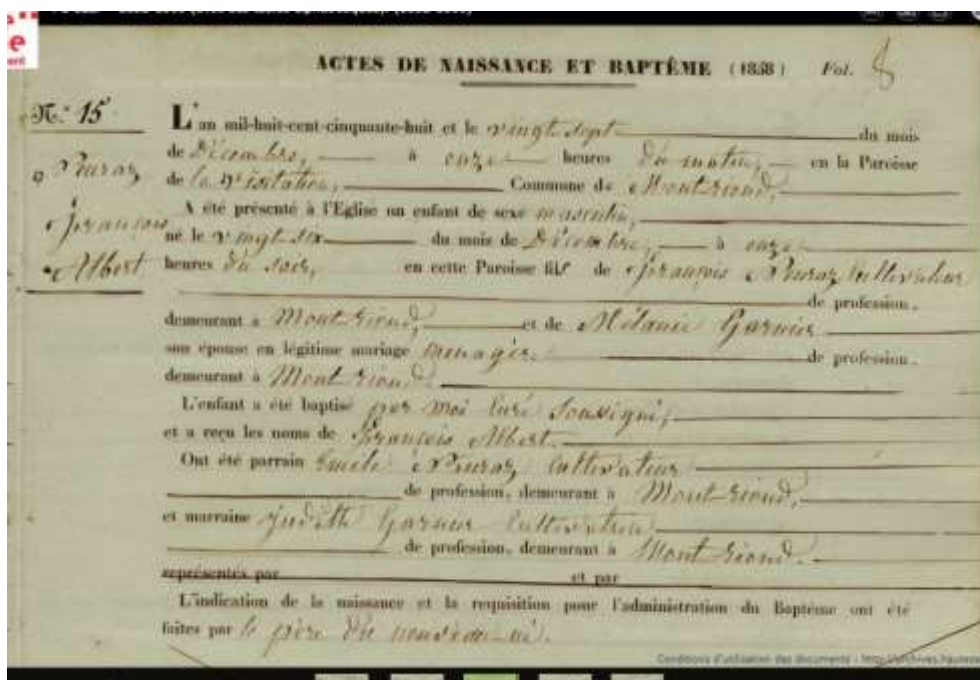 ACTES DE NAISSANCE ET BAPTÊME (1858) Fol. 8
N.° 15
L'an mil-huit-cent-cinquante-huit et le vingt sept du mois
de Décembre, à onze heures du matin, en la Paroisse
de la Visitation, Commune de Montriond,
François
Albert
A été présenté à l'Eglise un enfant de sexe masculin,
né le vingt six du mois de Décembre, à onze
heures du soir, en cette Paroisse fils de François Cultivateur
de profession,
demeurant à Montriond, et de Mélanie Garnier
son épouse en légitime mariage ménagère de profession.
demeurant à Montriond.
L'enfant a été baptisé par moi Curé soussigné,
et a reçu les noms de François Albert.
Ont été parrain Emile Cultivateur
de profession, demeurant à Montriond,
et marraine Judith Garnier Cultivatrice
de profession, demeurant à Montriond.
représentés par et par
L'indication de la naissance et la requisition pour l'administration du Baptême ont été
faites par le père du nouveau-né.
Conditions d'utilisation des documents : http://archives.hautesa